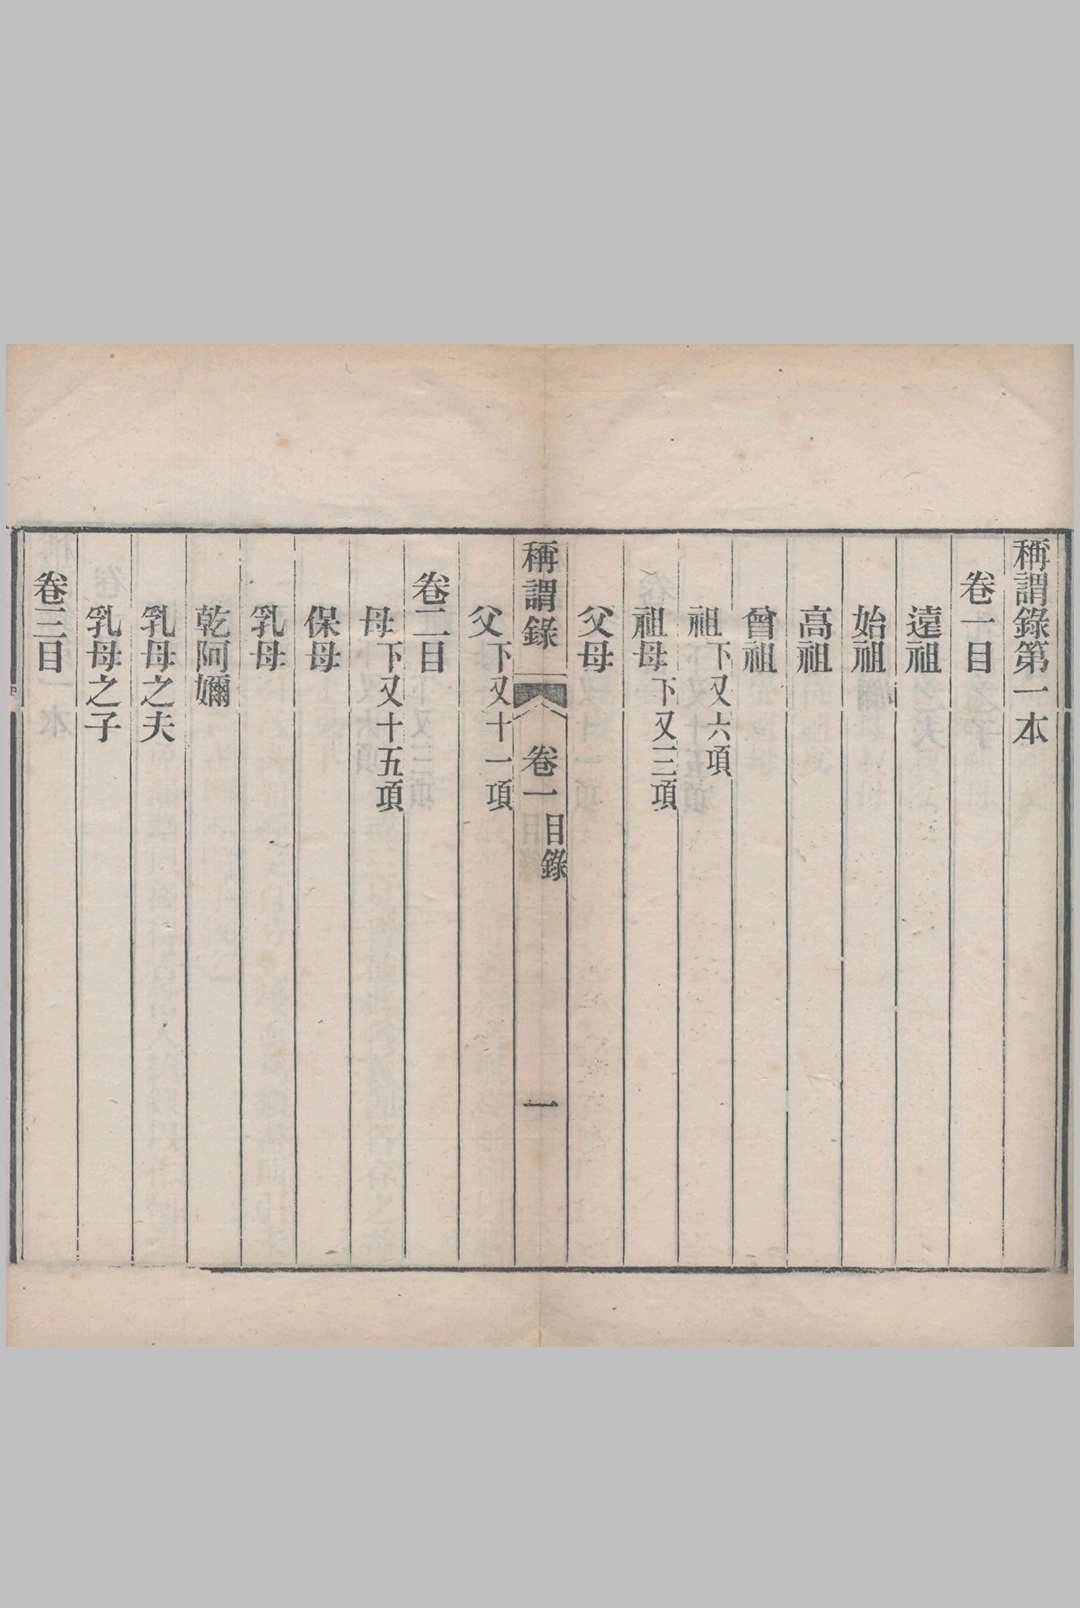 稱謂錄第一本
卷一目
遠祖
始祖
高祖
曾祖
祖下又六項
祖母下又三項
父母
稱謂錄 卷一目錄 一
父下又十一項
卷二目
母下又十五項
保母
乳母
乾阿嬭
乳母之夫
乳母之子
卷三目